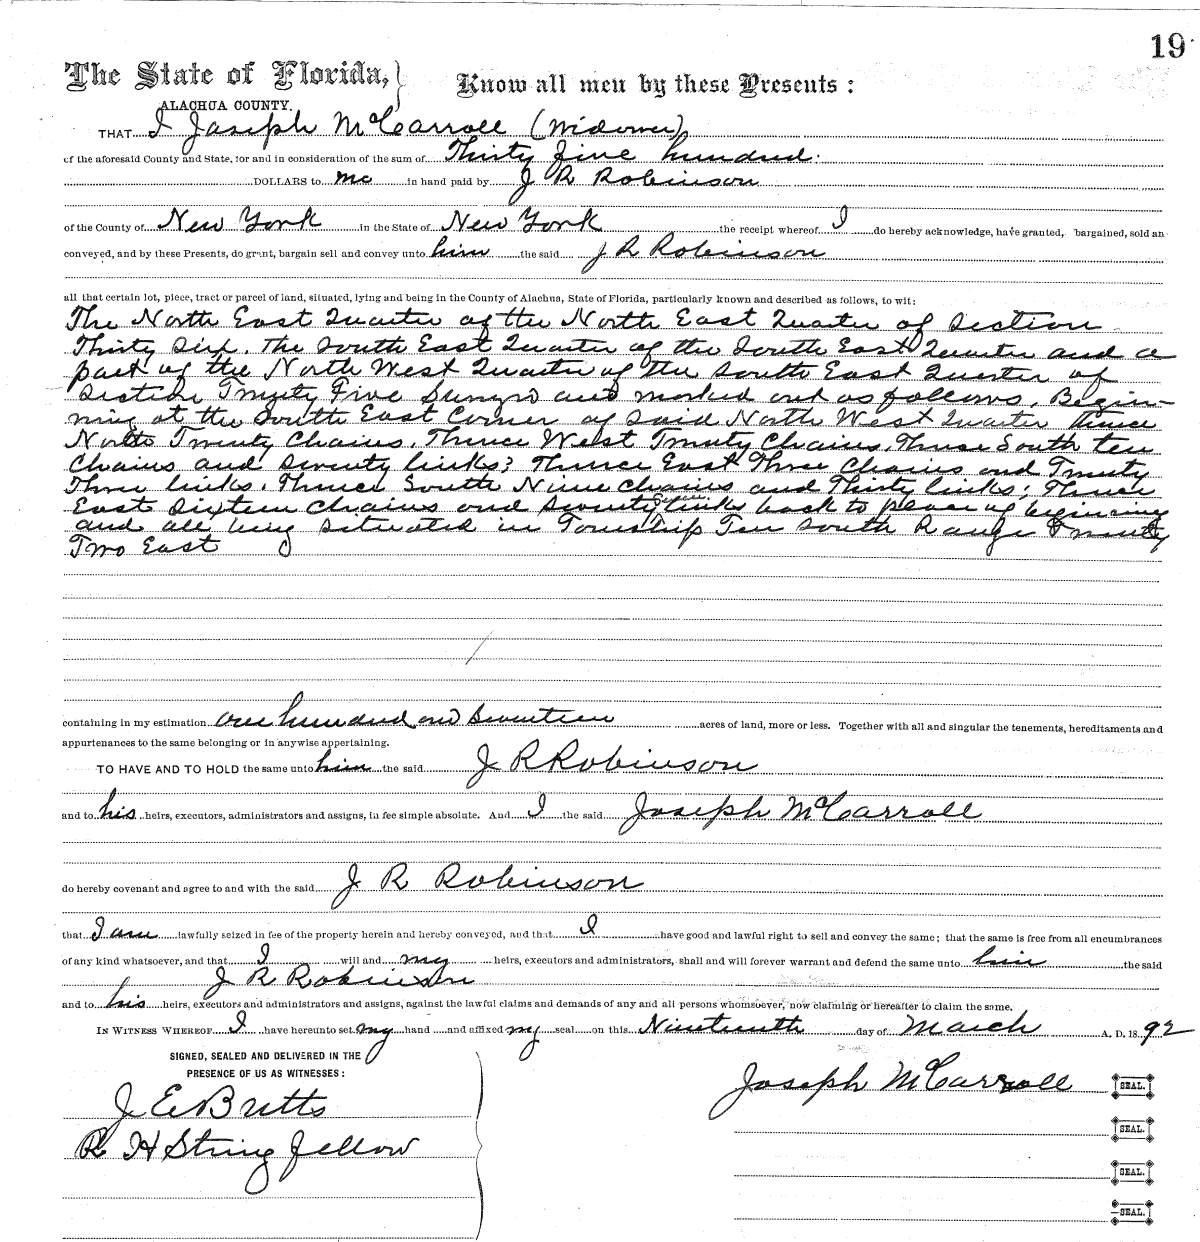 19
The State of Florida,
Know all men by these Presents:
ALACHUA COUNTY.
THAT I Joseph McCarroll (Widower)
of the aforesaid County and State, for and in consideration of the sum of Thirty five hundred.
DOLLARS to me in hand paid by J R Robinson
of the County of New York in the State of New York the receipt whereof I do hereby acknowledge, have granted, bargained, sold an
conveyed, and by these Presents, do grant, bargain sell and convey unto him the said J R Robinson
all that certain lot, piece, tract or parcel of land, situated, lying and being in the County of Alachua, State of Florida, particularly known and described as follows, to wit:
The North East Quarter of the North East Quarter of Section
Thirty Six. The South East Quarter of the South East Quarter and a
part of the North West Quarter of the South East Quarter of
Section Twenty Five Surveyed and marked out as follows. Begin-
ning at the South East Corner of Said North West Quarter thence
North Twenty Chains. Thence West Twenty Chains. Thence South ten
Chains and Seventy links; Thence East Three Chains and Twenty
Three links. Thence South Nine Chains and Thirty links; Thence
East Sixteen Chains and Seventy Seven links back to place of beginning
and all being situated in Township Ten South Range Twenty
Two East
containing in my estimation one hundred and Seventeen acres of land, more or less. Together with all and singular the tenements, hereditaments and
appurtenances to the same belonging or in anywise appertaining.
TO HAVE AND TO HOLD the same unto him the said J R Robinson
and to his heirs, executors, administrators and assigns, in fee simple absolute. And I the said Joseph McCarroll
do hereby covenant and agree to and with the said J R Robinson
that I am lawfully seized in fee of the property herein and hereby conveyed, and that I have good and lawful right to sell and convey the same; that the same is free from all encumbrances
of any kind whatsoever, and that I will and my heirs, executors and administrators, shall and will forever warrant and defend the same unto him the said
J R Robinson
and to his heirs, executors and administrators and assigns, against the lawful claims and demands of any and all persons whomsoever, now claiming or hereafter to claim the same.
IN WITNESS WHEREOF I have hereunto set my hand and affixed my seal on this Nineteenth day of March A. D. 1892
SIGNED, SEALED AND DELIVERED IN THE
PRESENCE OF US AS WITNESSES:
Joseph McCarroll SEAL.
J E Butts
SEAL.
R H Stringfellow
SEAL.
SEAL.